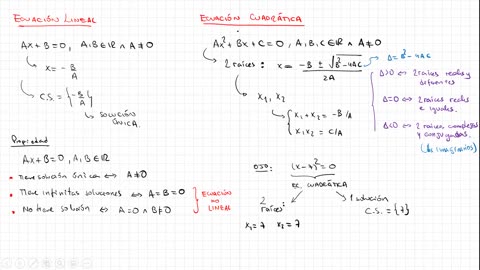 ECUACIÓN LINEAL
Ax + B = 0 , A,B ∈ ℝ ∧ A ≠ 0
x = -B/A
C.S. = {-B/A}
SOLUCIÓN ÚNICA.
Propiedad
Ax + B = 0 , A,B ∈ ℝ
• Tiene solución única ⟷ A ≠ 0
• Tiene infinitas soluciones ⟷ A = B = 0
• No tiene solución ⟷ A = 0 ∧ B ≠ 0
ECUACIÓN NO LINEAL
ECUACIÓN CUADRÁTICA
Ax² + Bx + C = 0 , A,B,C ∈ ℝ ∧ A ≠ 0
2 raíces: x = (-B ± √(B² - 4AC)) / 2A
Δ = B² - 4AC
x₁, x₂
x₁ + x₂ = -B/A
x₁x₂ = C/A
Δ>0 ⟷ 2 raíces reales y diferentes
Δ=0 ⟷ 2 raíces reales e iguales.
Δ<0 ⟷ 2 raíces complejas y conjugadas.
(No imaginarios)
OJO: (x-7)² = 0
EC. CUADRÁTICA
2 raíces:
x₁ = 7 x₂ = 7
1 solución
C.S. = {7}